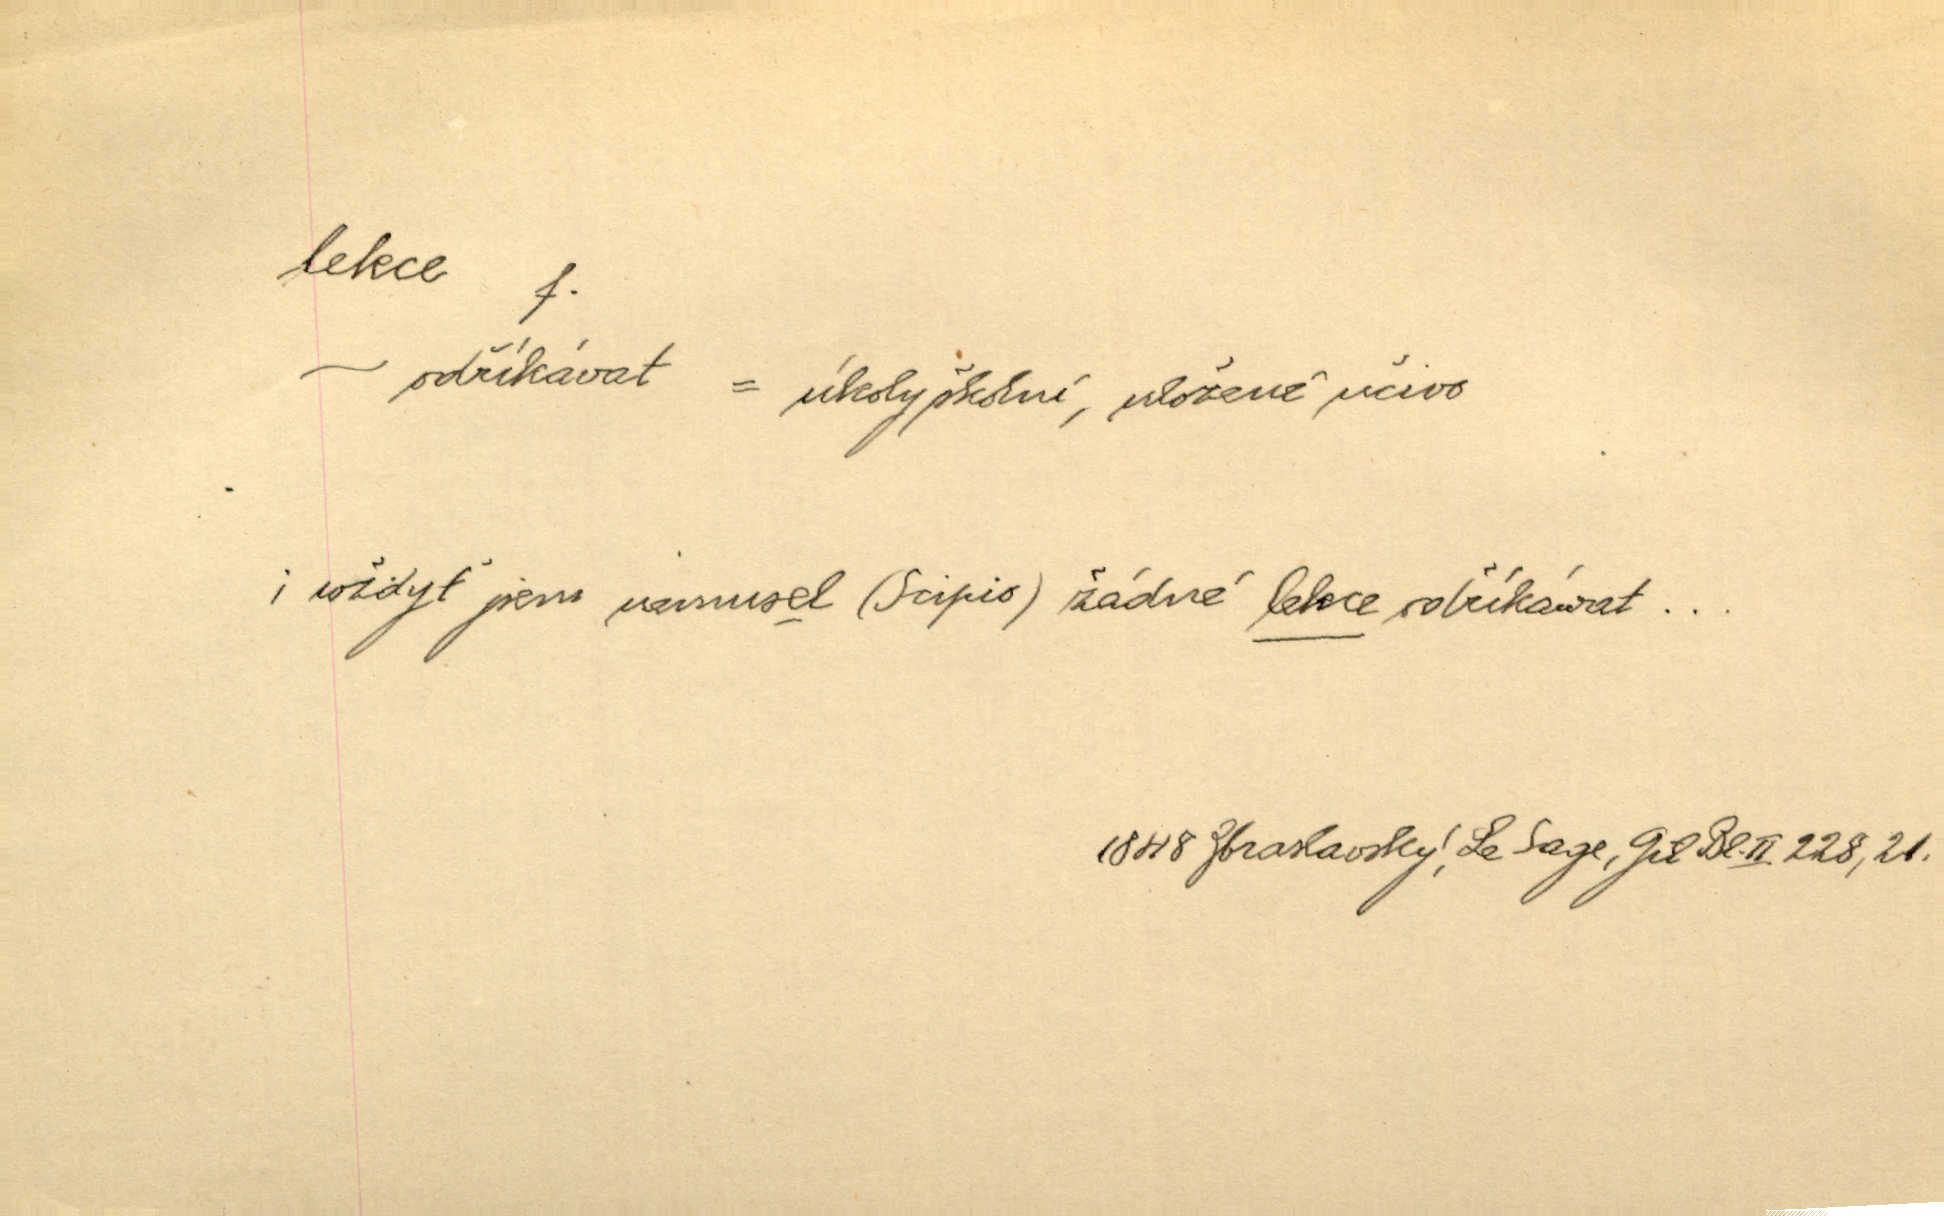 lekce f.
~ odříkávat = úkoly školní, uložené učivo
i wždyť jsem nemusel (Scipio) žádné lekce odříkáwat ...
1848 Zbraslavský, Le Sage, Gil Bl. II 228, 21.